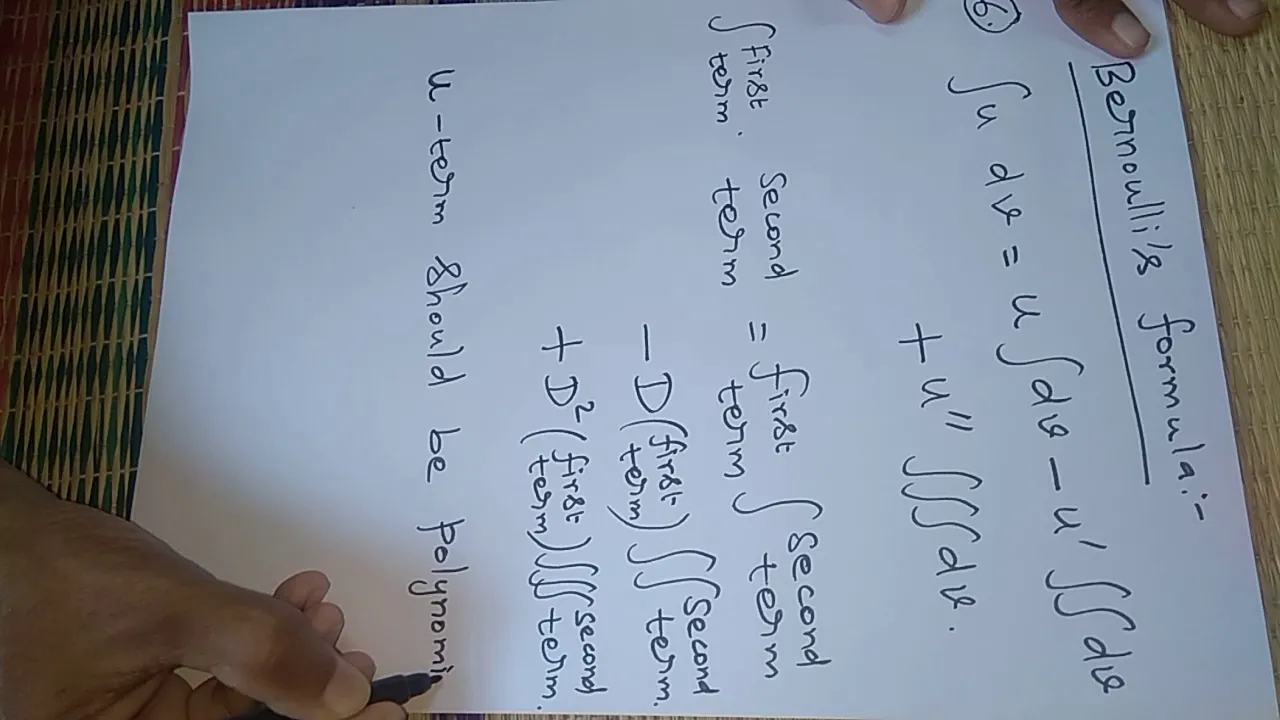 Bernoulli's formula:-
6. ∫u dv = u ∫dv - u' ∫∫dv
+ u'' ∫∫∫dv.
∫ first term . second term = first term ∫ second term
- D(first term) ∫∫ second term.
+ D²(first term) ∫∫∫ second term.
u-term should be polynomi